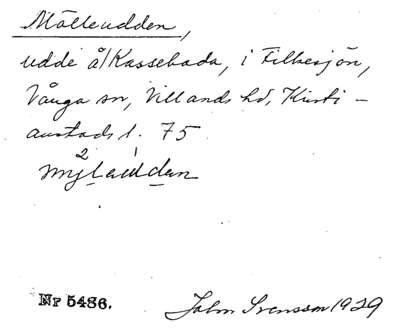 Mölleudden,
udde å/Kassebada, i Filkesjön,
Vånga sn, Villands hd, Kristi-
anstads l. 75
2 1
mylaúddan
Nr 5486.
John Svensson 1929